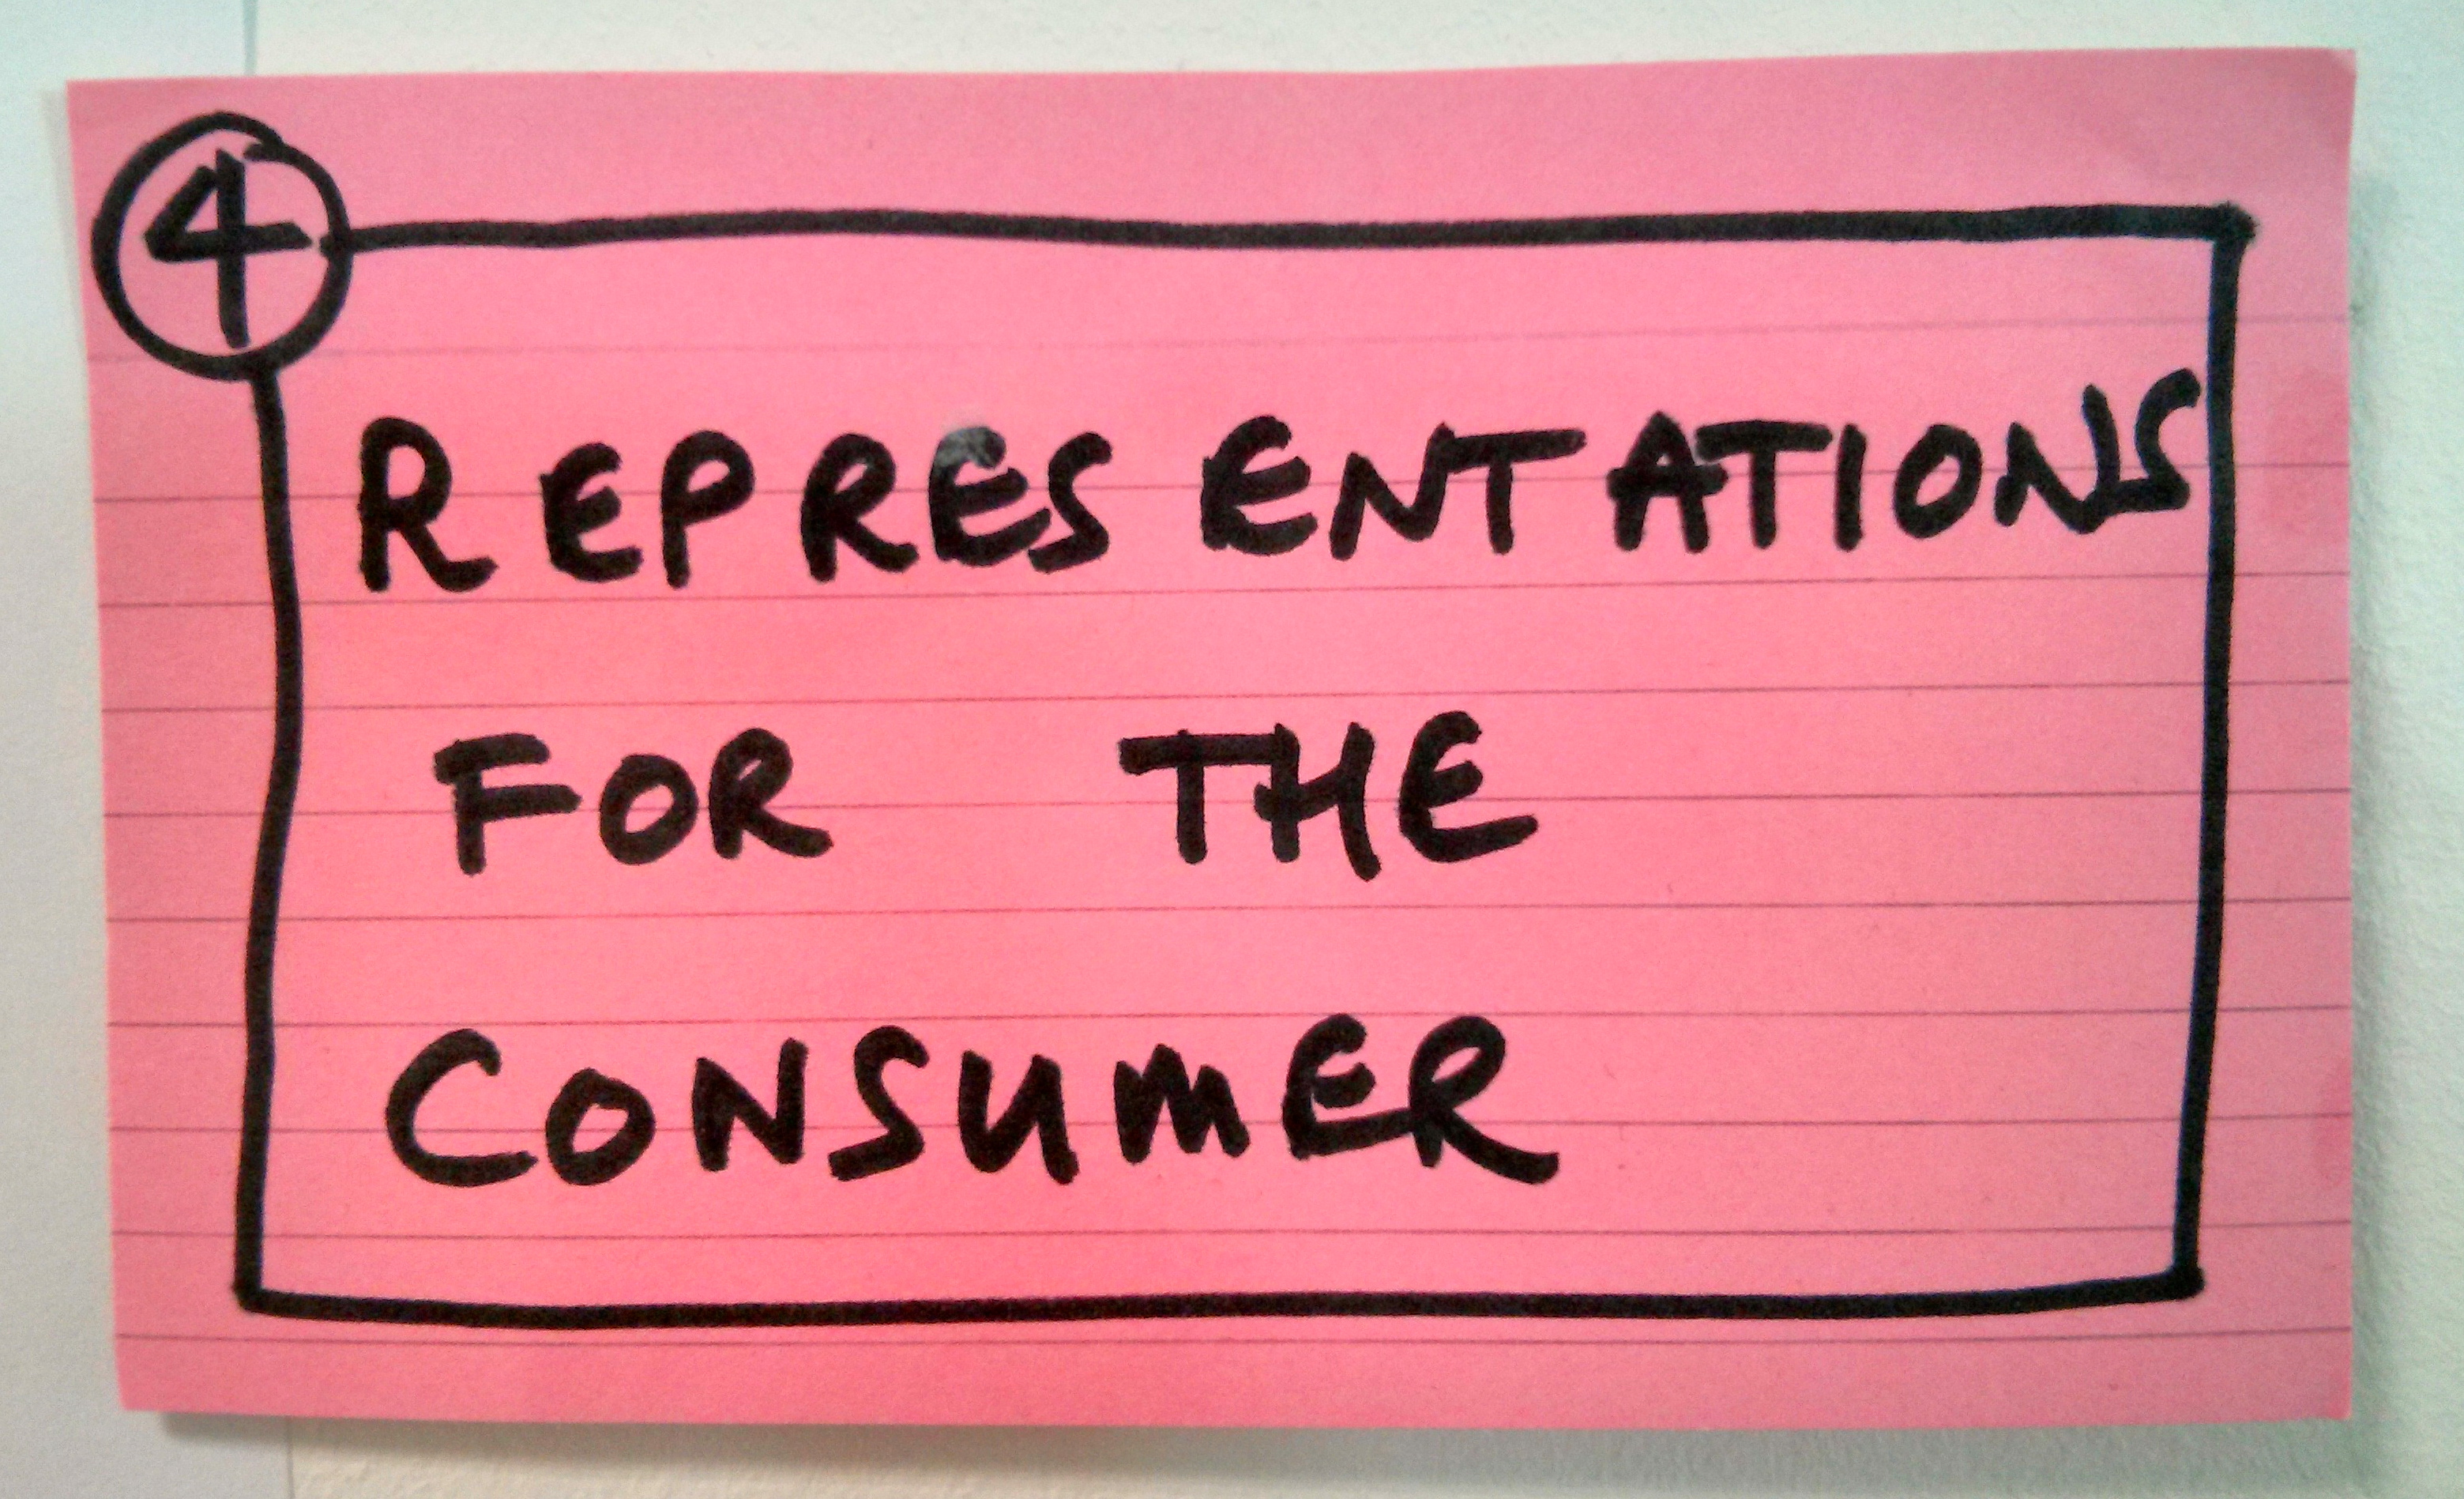 4
REPRESENTATIONS
FOR THE
CONSUMER